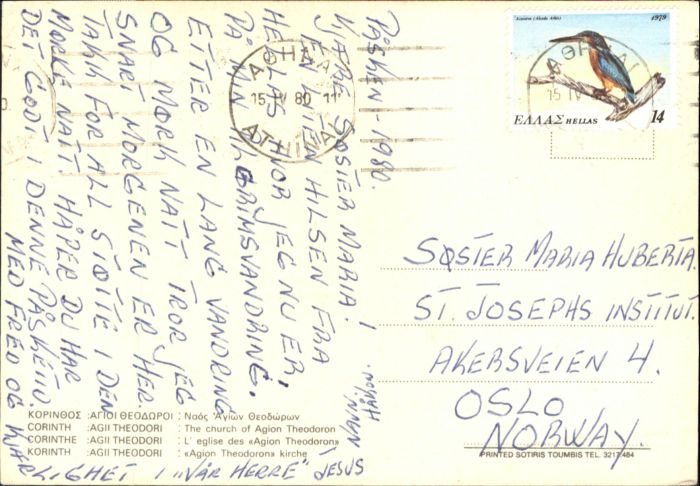 PÅSKEN-1980.
KJÆRE SØSTER MARIA.
EN LITEN HILSEN FRA
HELLAS, HVOR JEG NU ER,
PÅ MIN PILGRIMSVANDRING.
ETTER EN LANG VANDRING
OG MØRK NATT TROR JEG
SNART MORGENEN ER HER.
TAKK FOR ALL STØTTE I DEN
MØRKE NATT. HÅPER DU HAR
DET GODT I DENNE PÅSKETID.
MED FRED OG
KJÆRLIGHET I "VÅR HERRE" JESUS
I
NAVN.
ΑΘΗΝΑΙ
15 IV 80 11
ATHINAI
Αλκυών (Alcedo Atthis) 1979
ΕΛΛΑΣ HELLAS 14
ΑΘΗΝΑΙ
15 IV
SØSTER MARIA HUBERTA.
ST. JOSEPHS INSTITUT.
AKERSVEIEN 4.
OSLO
NORWAY.
ΚΟΡΙΝΘΟΣ : ΑΓΙΟΙ ΘΕΟΔΩΡΟΙ : Ναός Ἁγίων Θεοδώρων
CORINTH : AGII THEODORI : The church of Agion Theodoron
CORINTHE : AGII THEODORI : L' eglise des «Agion Theodoron»
KORINTH : AGII THEODORI : «Agion Theodoron» kirche
PRINTED SOTIRIS TOUMBIS TEL. 3217 484